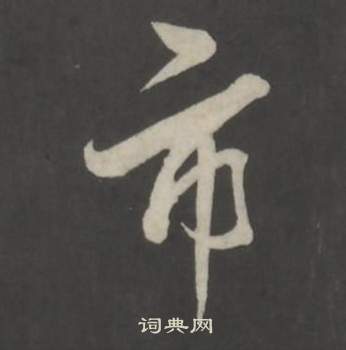 市
词典网